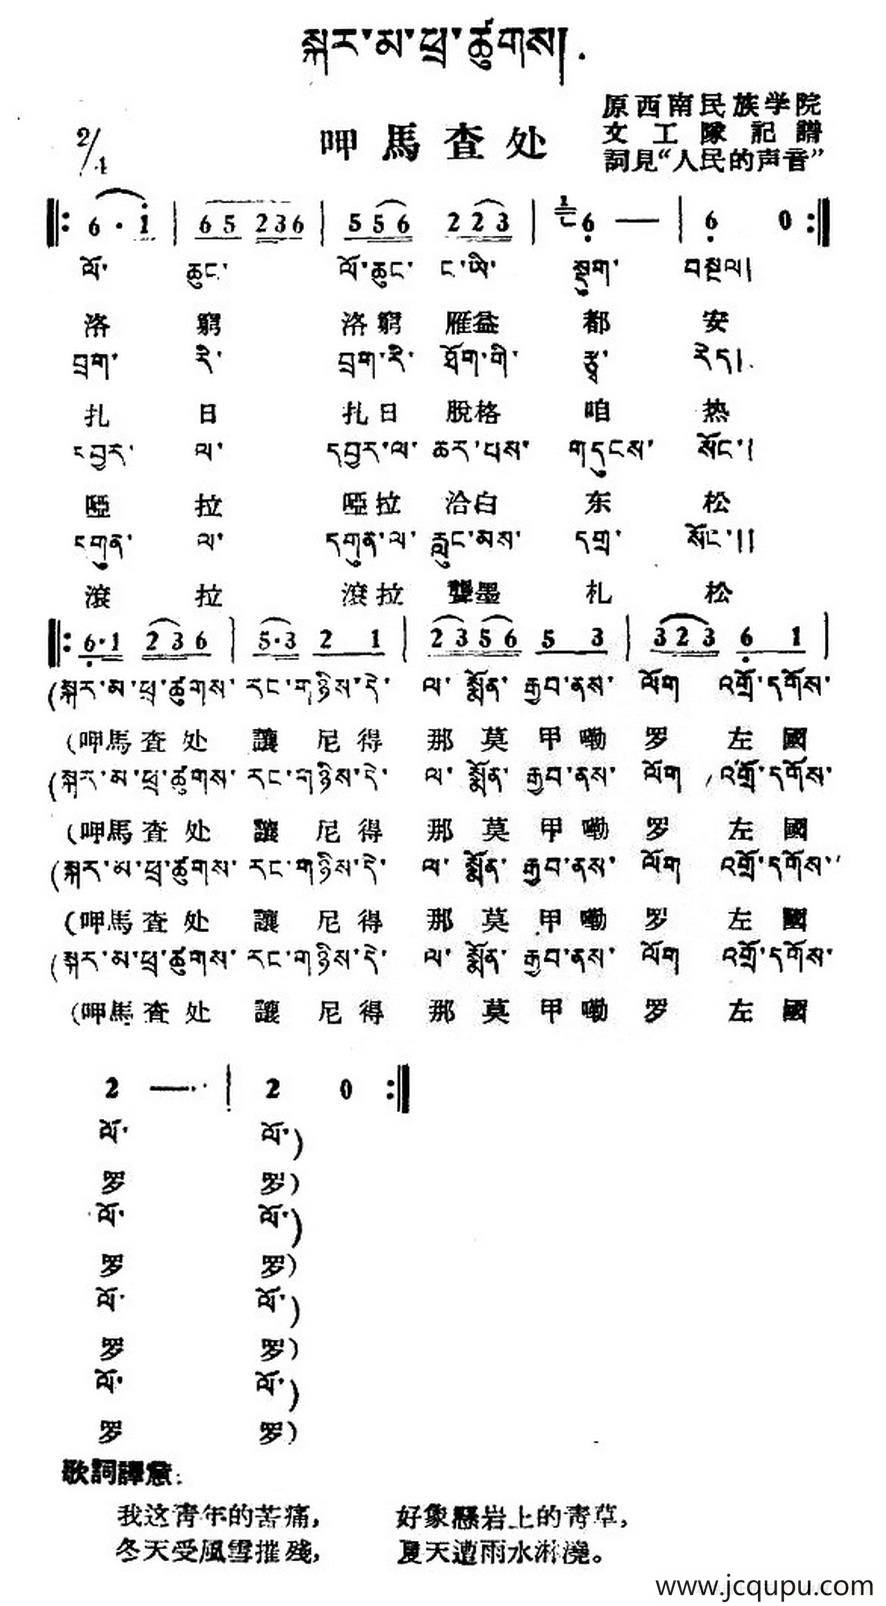 སྐར་མ་ཕྲ་ཚུགས།
呷馬查处
原西南民族学院
文工隊記譜
詞見“人民的声音”
2/4
6 · 1 | 65 236 | 556 223 | 6 — | 6 0
ལོ་ ཆུང་ ལོ་ཆུང་ ང་ཡི་ སྡུག་ བསྔལ།
洛 窮 洛窮 雁益 都 安
བྲག་ རི་ བྲག་རི་ ཐོག་གི་ རྩྭ་ རེད།
扎 日 扎日 脫格 咱 热
དབྱར་ ལ་ དབྱར་ལ་ ཆར་པས་ གདུངས་ སོང་།
啞 拉 啞拉 洽白 东 松
དགུན་ ལ་ དགུན་ལ་ རླུང་མས་ དགྲ་ སོང་།།
滾 拉 滾拉 聾墨 札 松
6·1 236 | 5·3 2 1 | 23 56 5 3 | 323 6 1
(སྐར་མ་ཕྲ་ཚུགས་ རང་གཉིས་དེ་ ལ་ སྨོན་ རྒྱབ་ནས་ ལོག འགྲོ་དགོས་
(呷馬查处 讓尼得 那莫甲嘞罗 左國
(སྐར་མ་ཕྲ་ཚུགས་ རང་གཉིས་དེ་ ལ་ སྨོན་ རྒྱབ་ནས་ ལོག འགྲོ་དགོས་
(呷馬查处 讓尼得 那莫甲嘞罗 左國
(སྐར་མ་ཕྲ་ཚུགས་ རང་གཉིས་དེ་ ལ་ སྨོན་ རྒྱབ་ནས་ ལོག འགྲོ་དགོས་
(呷馬查处 讓尼得 那莫甲嘞罗 左國
(སྐར་མ་ཕྲ་ཚུགས་ རང་གཉིས་དེ་ ལ་ སྨོན་ རྒྱབ་ནས་ ལོག འགྲོ་དགོས་
(呷馬查处 讓尼得 那莫甲嘞罗 左國
2 — | 2 0
ལོ་ ལོ་)
罗 罗)
ལོ་ ལོ་)
罗 罗)
ལོ་ ལོ་)
罗 罗)
ལོ་ ལོ་)
罗 罗)
歌詞譯意:
我这青年的苦痛, 好象懸岩上的青草,
冬天受風雪摧殘, 夏天遭雨水淋澆。
www.jcqupu.com